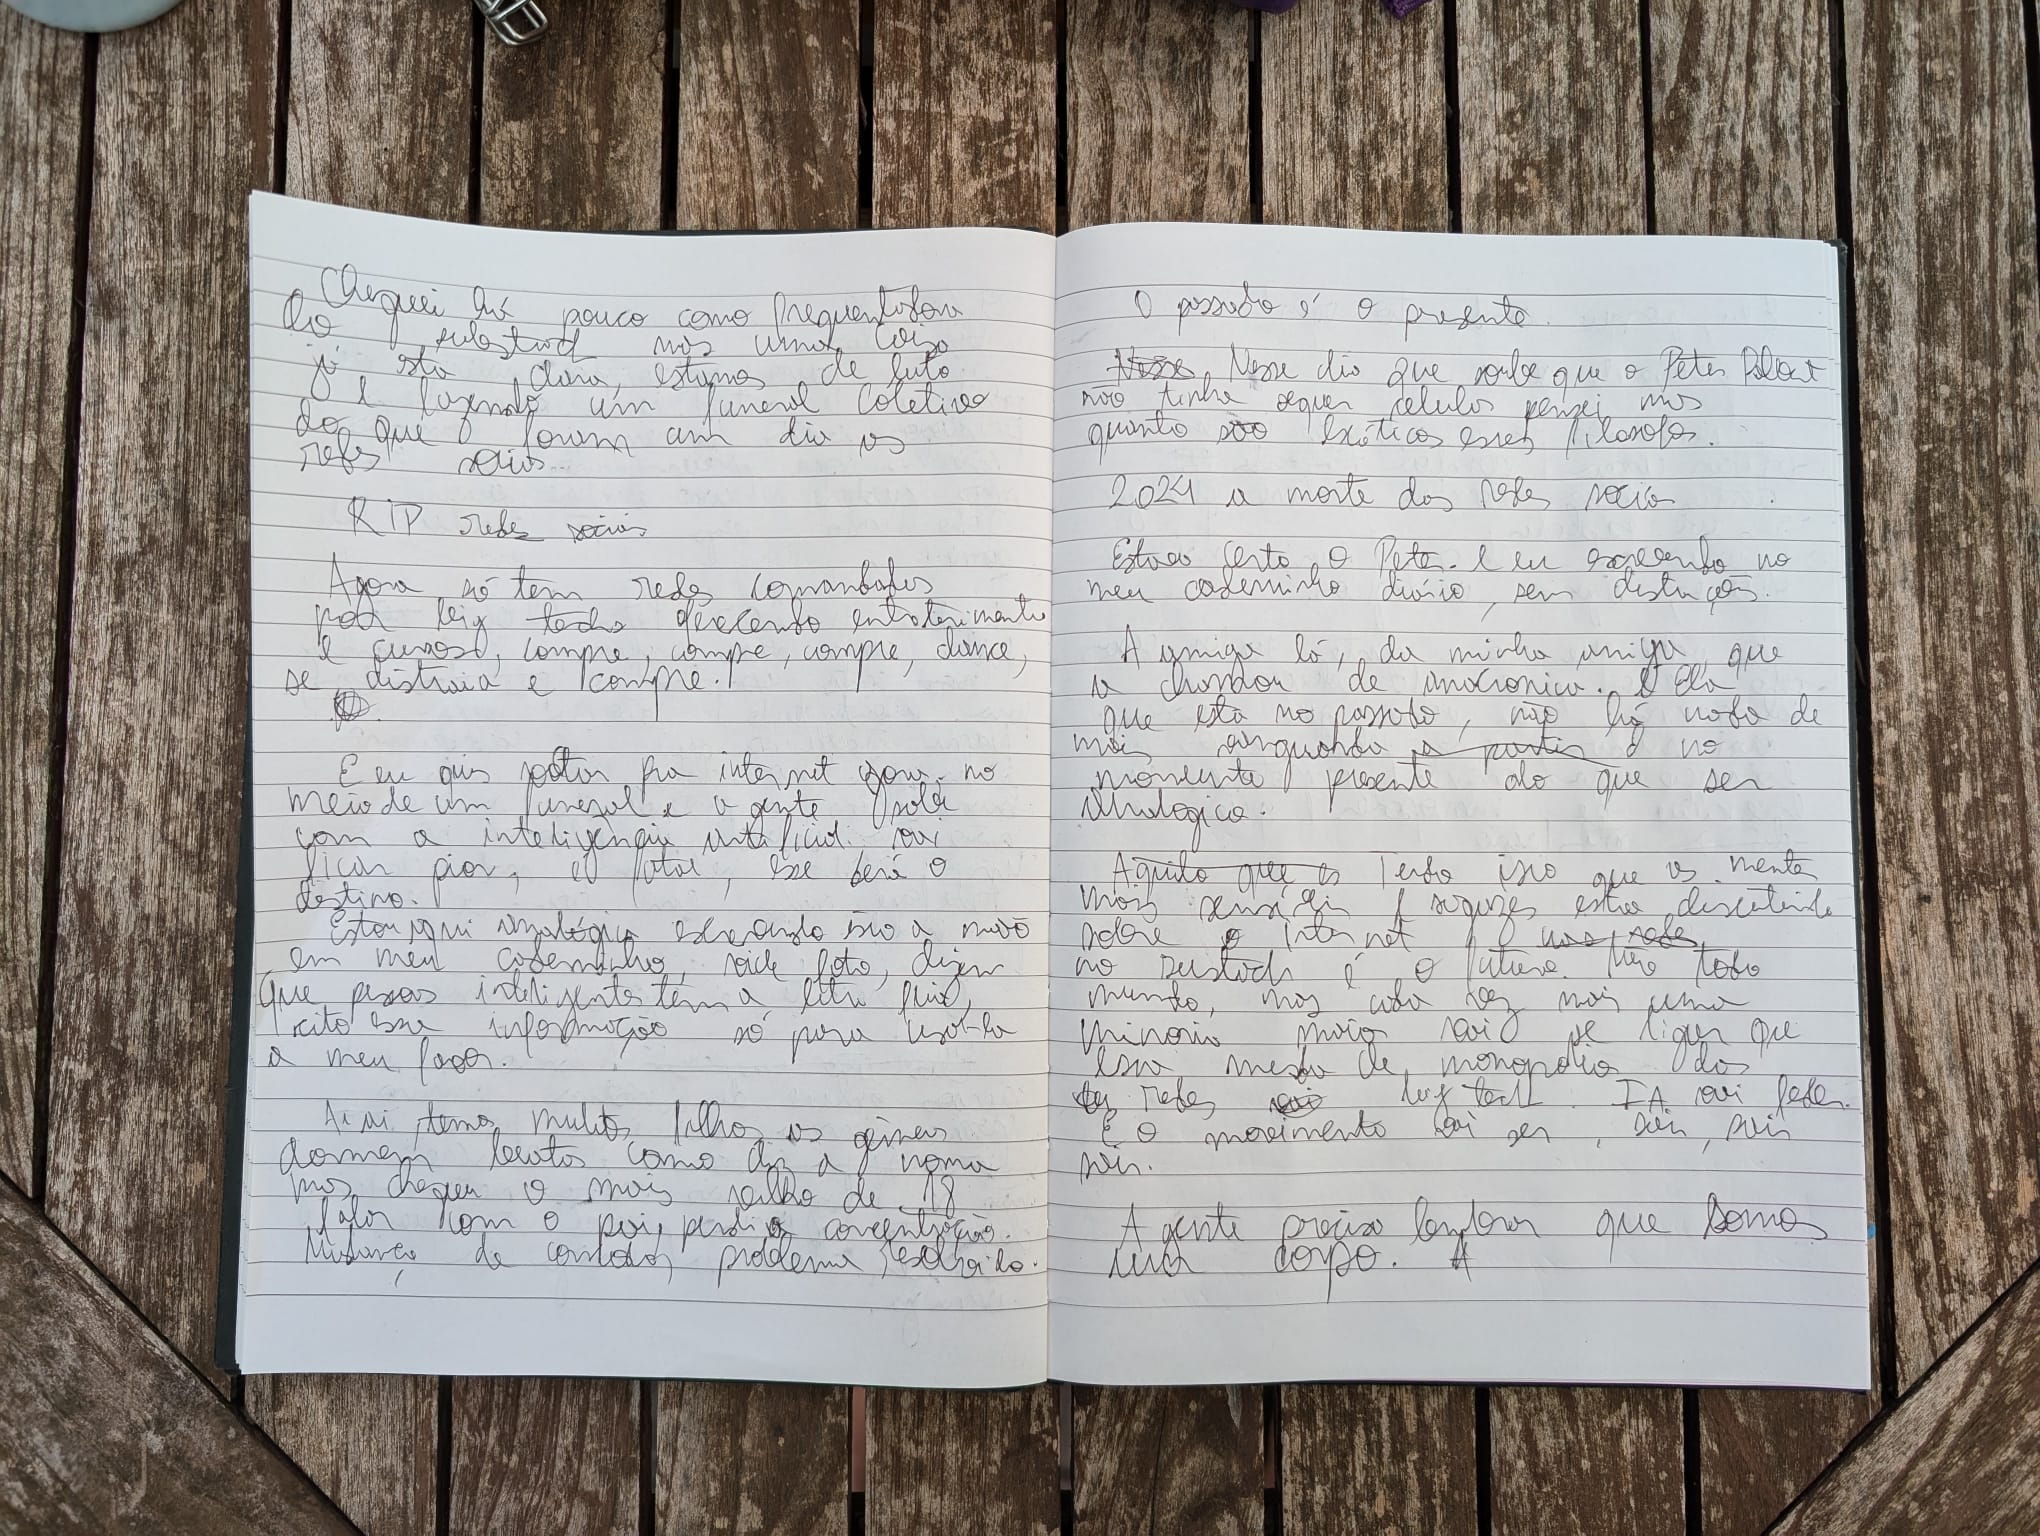 Cheguei há pouco como frequentadora
do substack mas uma coisa
já está clara, estamos de luto
e fazendo um funeral coletivo
do que foram um dia as
redes sociais...
RIP redes sociais
Agora só tem redes comandadas
por big techs oferecendo entreterimento
e curso, compre, compre, compre, dance,
se distraia e compre.
E eu quis voltar pra internet agora, no
meio de um funeral e a gente sabe
com a inteligência artificial vai
ficar pior, é fatal, esse será o
destino.
Estou aqui analógica escrevendo isso a mão
em meu caderninho, vide foto, dizem
que pessoas inteligentes têm a letra feia,
cito essa informação só para usá-la
a meu favor.
temos muitos filhos os gêmeos
dormem lento como diz a
mas chegou o mais velho de 18
falar com o pai, perdi a concentração.
Mudança de comodos, problema resolvido.
O passado é o presente.
Nesse Nesse dia que soube que o Peter
não tinha sequer celular pensei mas
quanto são exóticos esses filósofos.
2024 a morte das redes sociais
Estava certo o Peter. E eu escrevendo no
meu caderninho diário, sem distrações.
A amiga lá, da minha amiga que
a chamou de anacronica. Ela
que está no passado, não há nada de
mais vanguarda a partir no
momento presente do que ser
analógica.
Aquilo que os Tendo isso que as mentes
mais sensíveis e sagazes estão discutindo
sobre a internet nas redes
no substack é o futuro. Não todo
mundo, mas cada vez mais uma
minoria maior vai se ligar que
essa merda de monopólio das
redes vai big tech. IA vai feder.
E o movimento vai ser, sair, sair
sair.
A gente precisa lembrar que somos
um corpo. #